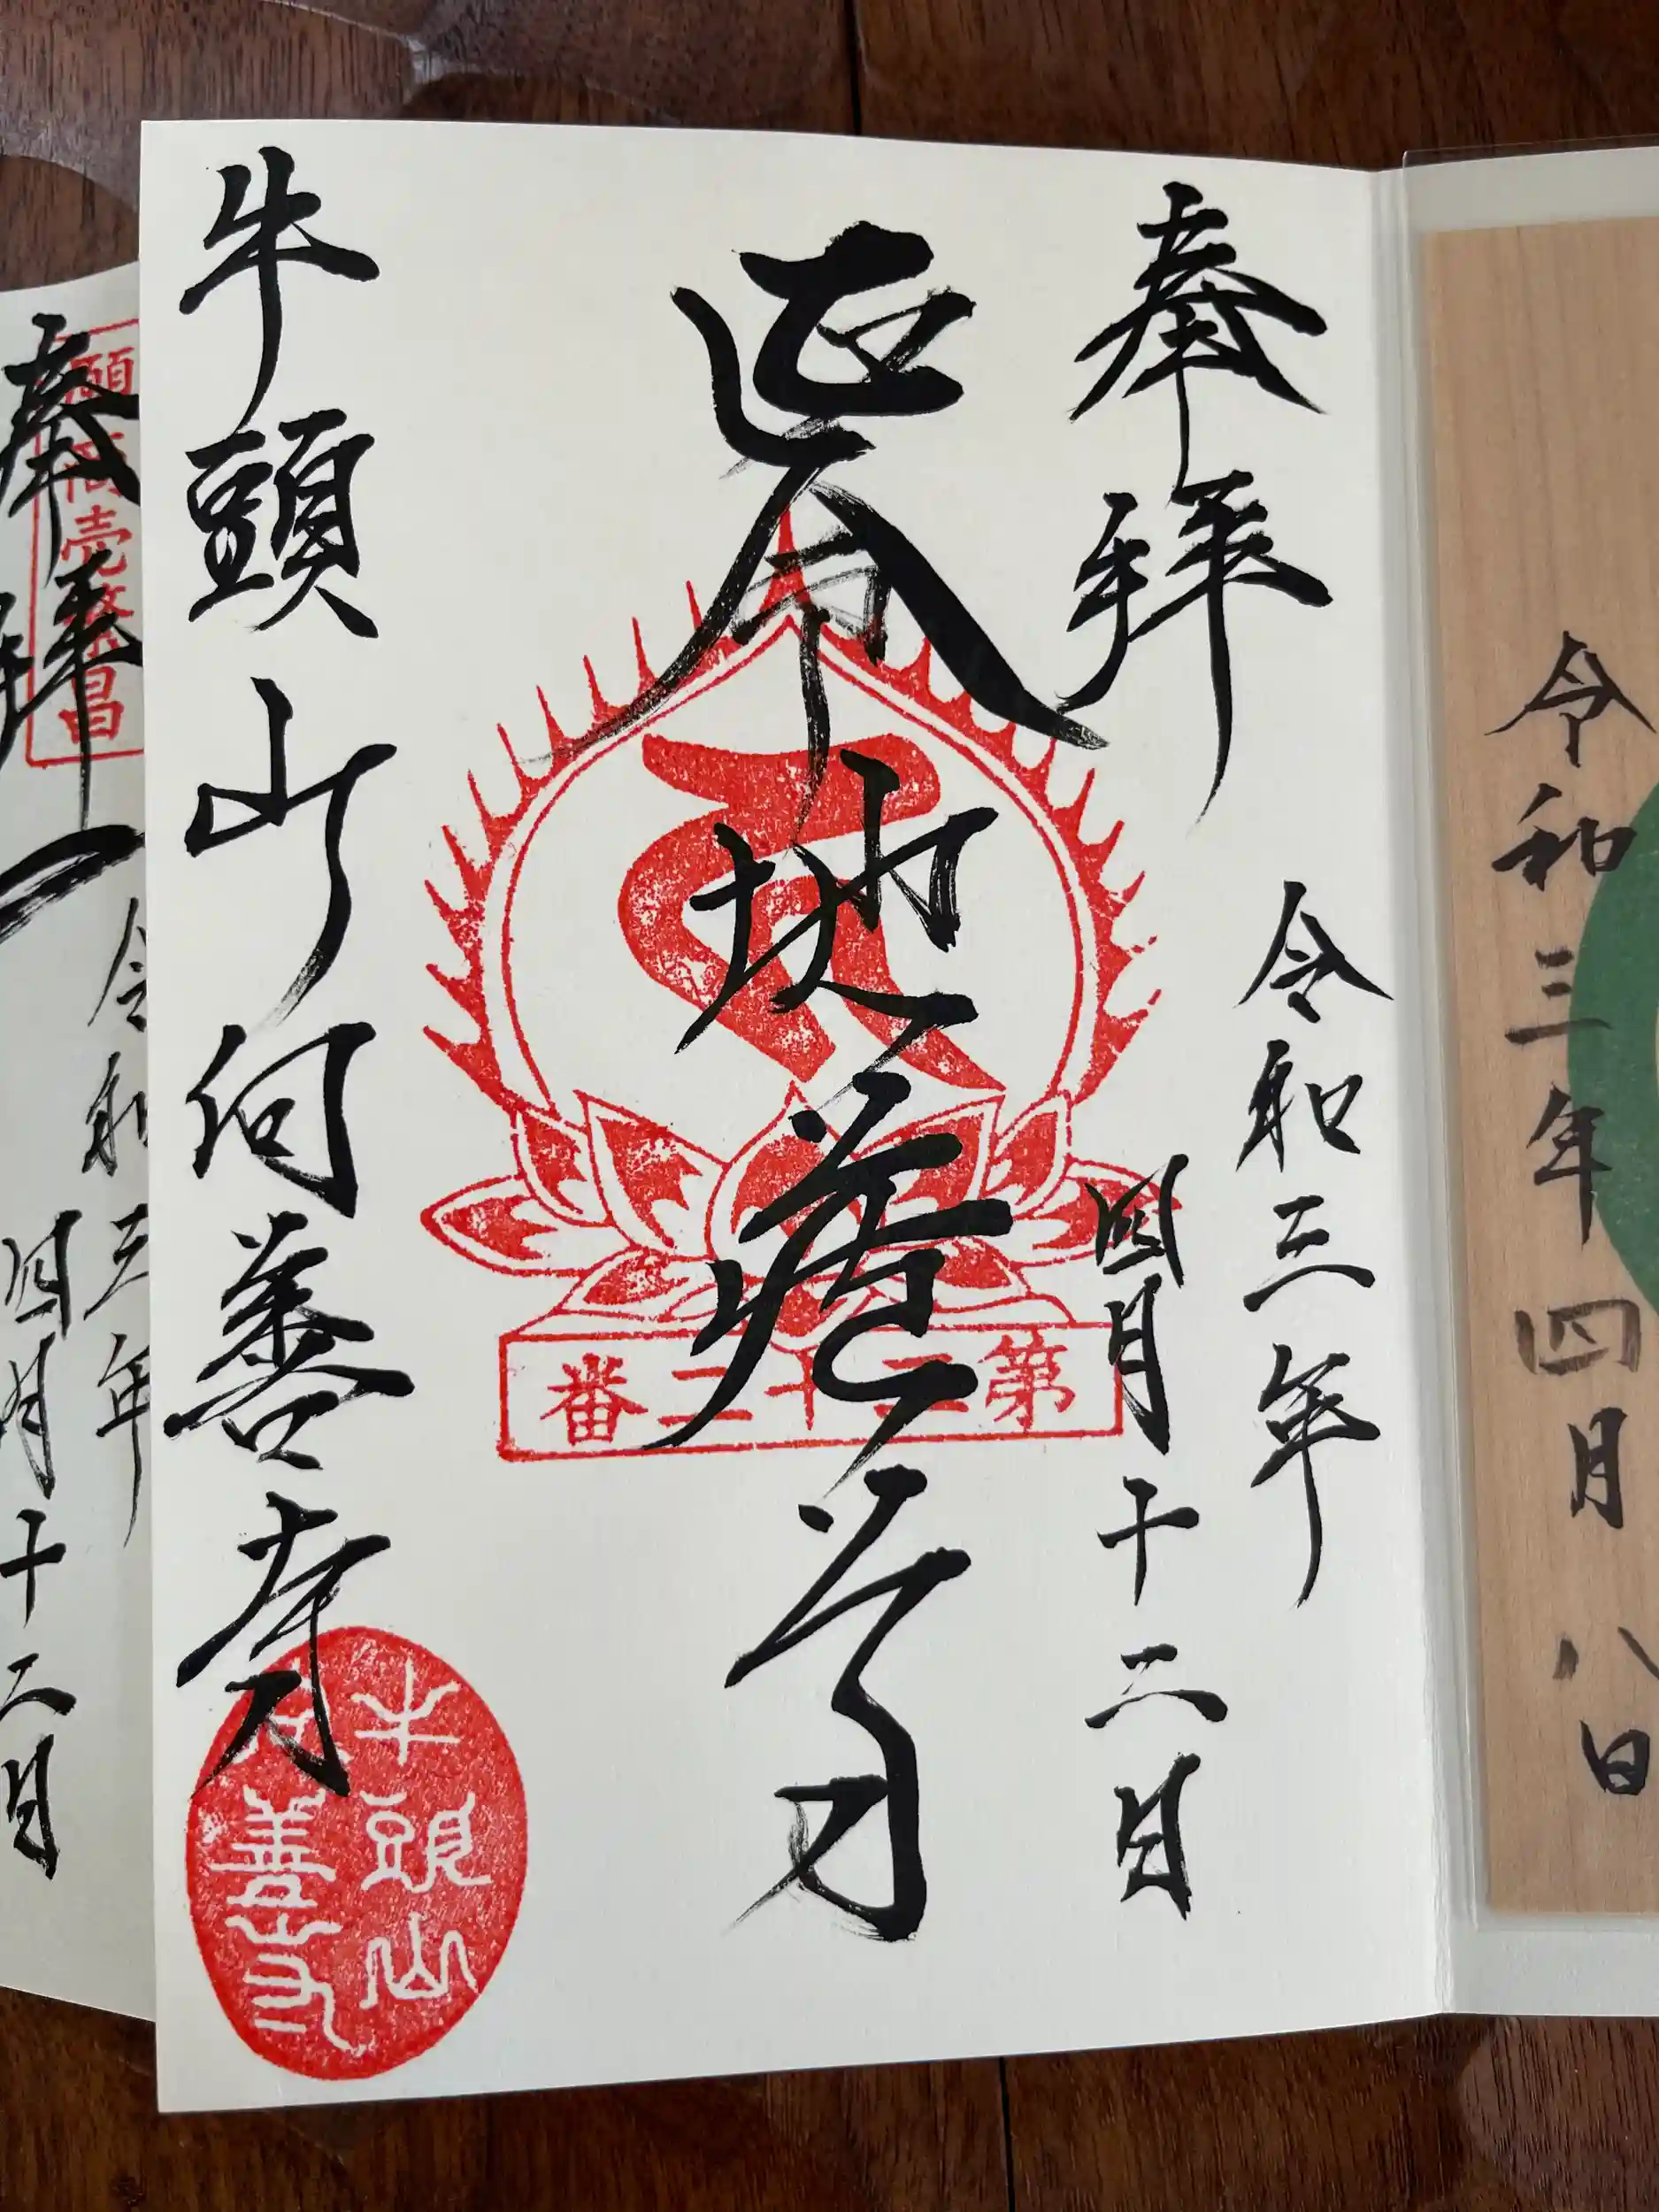 令和三年四月八日
奉拝
令和三年
四月十二日
延命地蔵尊
第三十二番
牛頭山善寺
牛頭山
善寺
奉拝
令和三年
四月十二日
商売繁昌